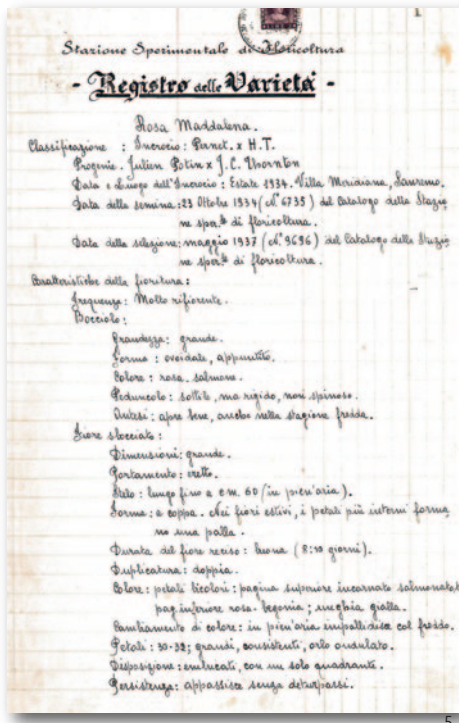 1
Stazione Sperimentale di Floricoltura
- Registro delle Varietà -
Rosa Maddalena.
Classificazione : Incrocio: Pernet. x H.T.
Progenie. Julien Potin x J.C. Thornton
Data e Luogo dell'Incrocio: Estate 1934. Villa Meridiana, Sanremo.
Data della semina: 23 Ottobre 1934 (N° 6735) del Catalogo della Stazio
ne sper.le di floricoltura.
Data della selezione: maggio 1937 (N° 9696) del Catalogo della Stazio
ne sper.le di floricoltura.
Caratteristiche della fioritura:
Frequenza: Molto rifiorente.
Bocciolo:
Grandezza: grande.
Forma : ovoidale, appuntito.
Colore : rosa. salmone.
Peduncolo: sottile, ma rigido, non spinoso.
Antesi: apre bene, anche nella stagione fredda.
Fiore sbocciato:
Dimensioni: grande.
Portamento: eretto.
Stelo: lungo fino a c m. 60 (in pien'aria).
Forma: a coppa. Nei fiori estivi, i petali più interni forma
no una palla.
Durata del fiore reciso: buona (8:10 giorni).
Duplicatura: doppia.
Colore: petali bicolori: pagina superiore incarnato salmonato,
pag. inferiore rosa-begonia; unghia gialla.
Cambiamento di colore: in pien'aria impallidisce col freddo.
Petali: 30-32; grandi, consistenti, orlo ondulato.
Disposizione: embricati, con un solo quadrante.
Persistenza: appassisce senza deturpassi.
5